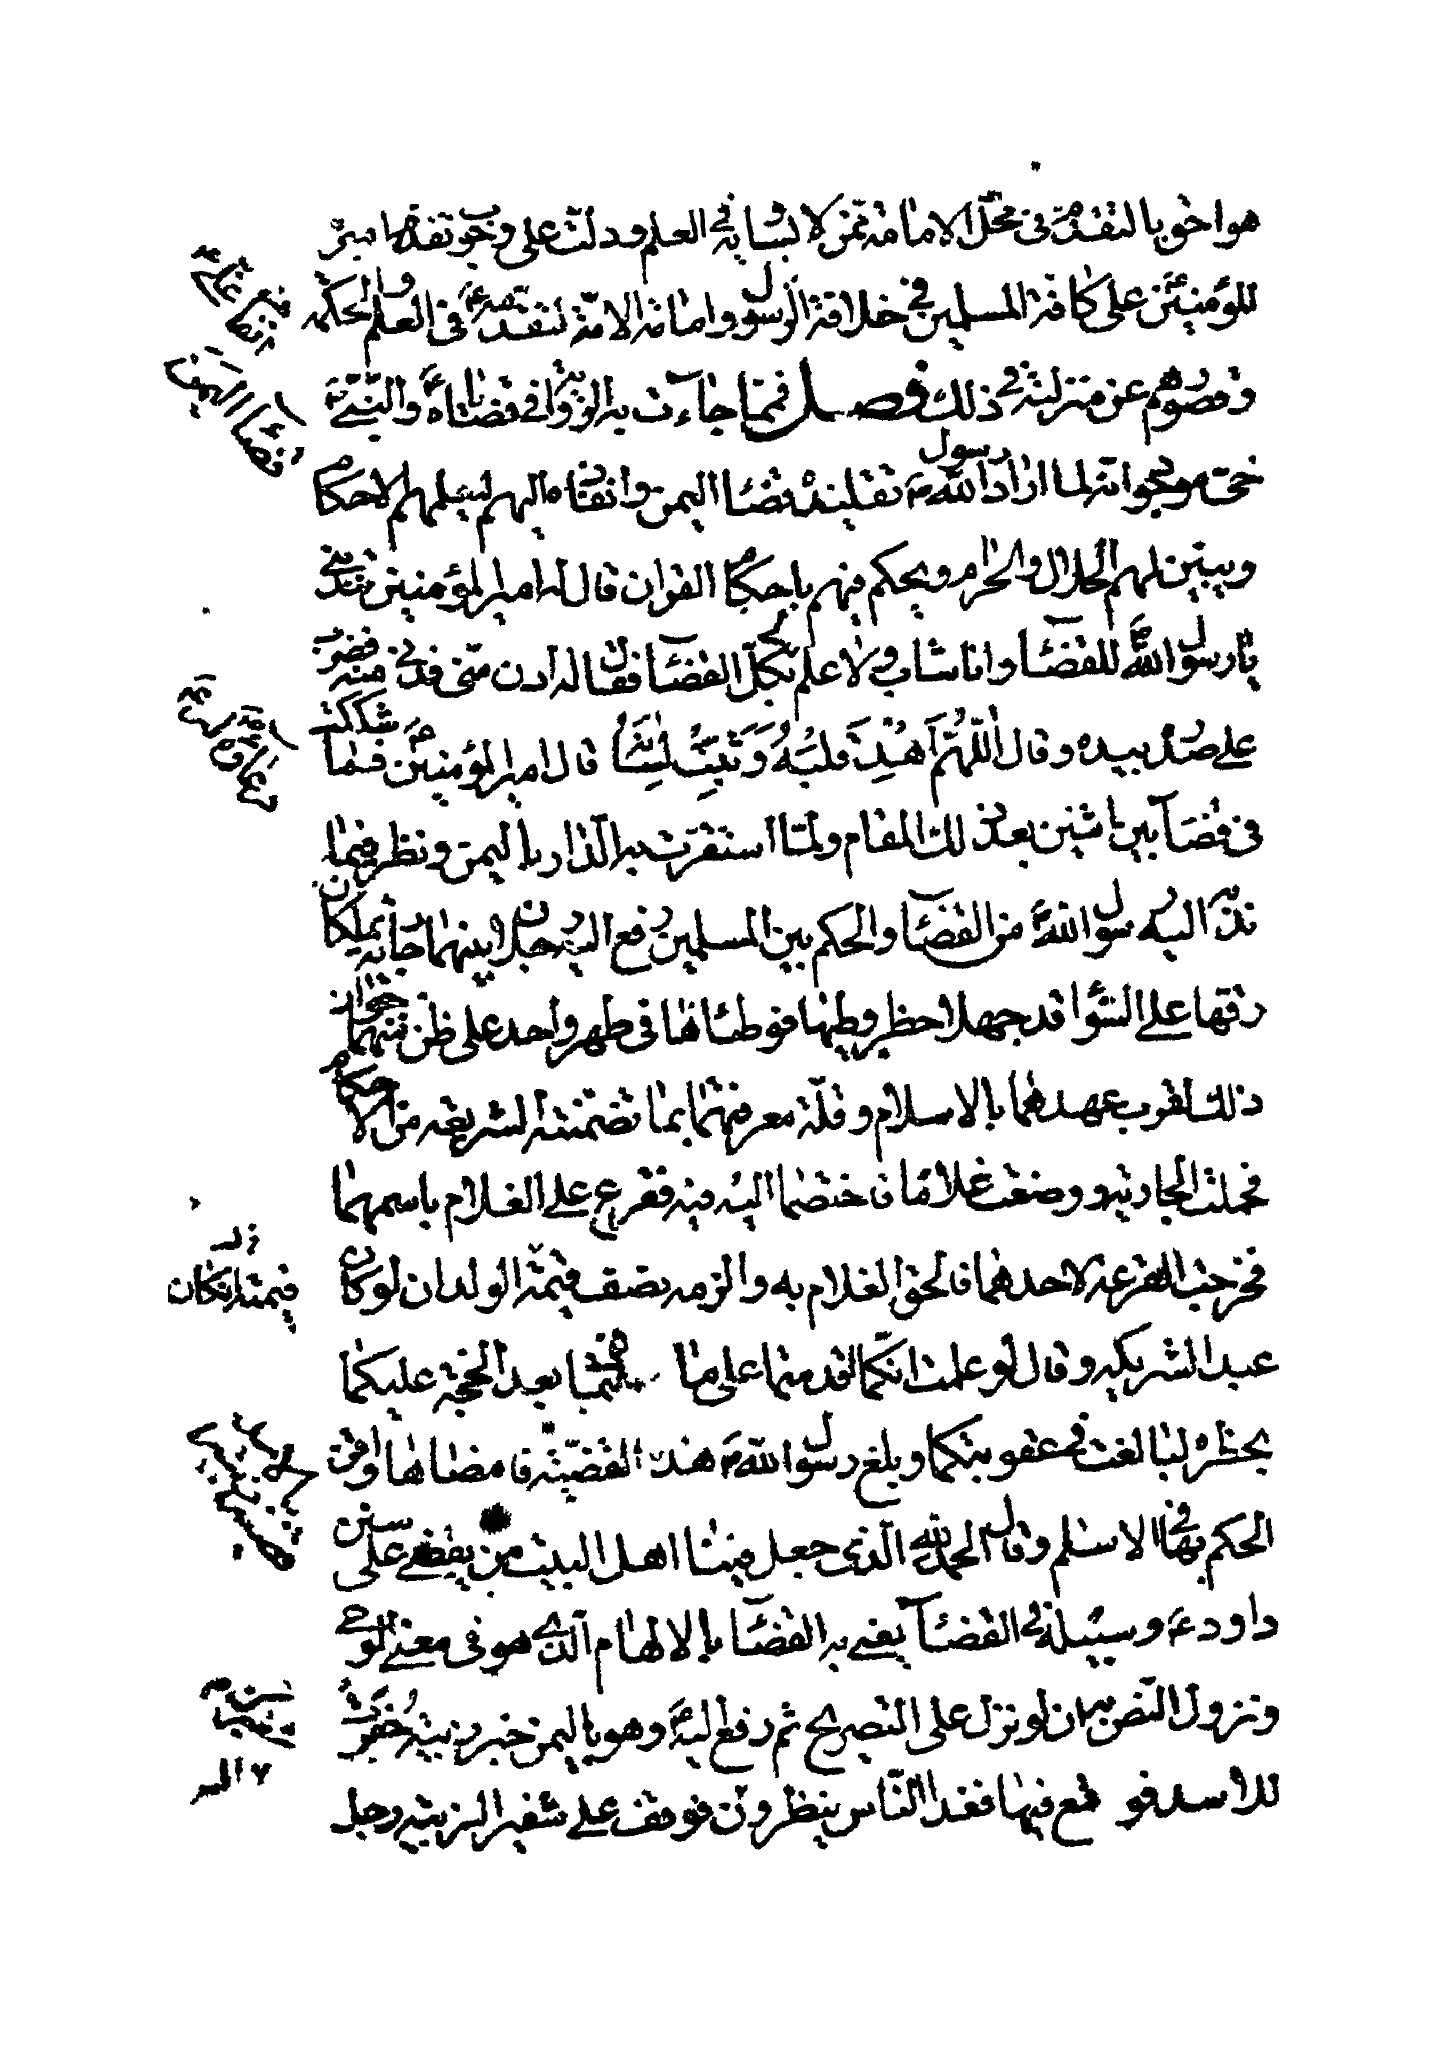 هو احق بالتقدم في محل الامامة ممن لا يشابه في العلم ودلت على وجوب تقدم امير
للمؤمنين على كافة المسلمين في خلافة الرسول وامامة الامة لتقدمه ع في العلم والحكمة
وقصورهم عن منزلته في ذلك فصل فمما جاءت به الرواية في قضاياه ع والنبي ص
حي موجود انه لما اراد رسول الله ص تقليده قضاء اليمن وانفاذه اليهم ليعلمهم الاحكام
ويبين لهم الحلال والحرام ويحكم فيهم باحكام القران قال له امير المؤمنين تندبني
يا رسول الله ص للقضاء وانا شاب ولا علم لي بكل القضاء فقال له ادن مني فدنى منه فضرب
على صدره بيده وقال اَللّهُمَّ اهْدِ قَلْبَهُ وَثَبِّتْ لِسَانَهُ قال امير المؤمنين ع فما شككت
في قضاء بين اثنين بعد ذلك المقام ولما استقرت به الدار باليمن ونظر فيما
ندبه اليه رسول الله ص من القضاء والحكم بين المسلمين رفع اليه رجلان بينهما جارية يملكان
رقها على السواء قد جهلا حظر وطيها فوطئاها في طهر واحد على ظن منهما جواز
ذلك لقرب عهدهما بالاسلام وقلة معرفتهما بما تضمنته الشريعة من الاحكام
فحملت الجارية ووضعت غلاما فاختصما اليه فيه فقرع على الغلام باسمهما
فخرجت القرعة لاحدهما فالحق الغلام به والزمه نصف قيمة الولد ان لو كان
عبدا لشريكه وقال لو علمت انكما اقدمتما على ما فعلتما بعد الحجة عليكما
بحظره لبالغت في عقوبتكما وبلغ رسول الله ص هذه القضية فامضاها واقر
الحكم بها في الاسلم وقال الحمد لله الذي جعل فينا اهل البيت من يقضي على سنن
داود ع وسبيله في القضاء يعني به القضاء بالالهام الذي هو في معنى الوحي
ونزول النص به ان لو نزل على التصريح ثم رفع اليه ع وهو باليمن خبر زبية حفرت
للاسد فوقع فيها فغدا الناس ينظرون فوقف على شفير الزبية رجل
قضاء اليمن
قيمته ان كان